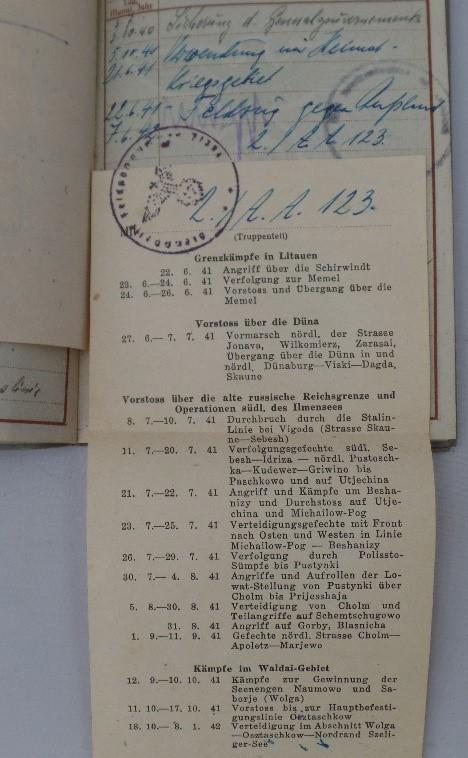 Monat, Jahr
5.10.40
Sicherung d. Generalgouvernements
5.10.40
Verwendung im Heimat-
21.6.41
kriegsgebiet
22.6.41-
Feldzug gegen Rußland
7.6.42
2./A.A. 123.
2./A.A. 123.
(Truppenteil)
Grenzkämpfe in Litauen
22. 6. 41 Angriff über die Schirwindt
23. 6.—24. 6. 41 Verfolgung zur Memel
24. 6.—26. 6. 41 Vorstoss und Übergang über die
Memel
Vorstoss über die Düna
27. 6.— 7. 7. 41 Vormarsch nördl. der Strasse
Jonava, Wilkomierz, Zarasai,
Übergang über die Düna in und
nördl. Dünaburg—Viski—Dagda,
Skaune
Vorstoss über die alte russische Reichsgrenze und
Operationen südl. des Ilmensees
8. 7.—10. 7. 41 Durchbruch durch die Stalin-
Linie bei Vigoda (Strasse Skau-
ne—Sebesh)
11. 7.—20. 7. 41 Verfolgungsgefechte südl. Se-
besh—Idriza — nördl. Pustosch-
ka—Kudewer—Griwino bis
Paschkowo und auf Utjechina
21. 7.—22. 7. 41 Angriff und Kämpfe um Besha-
nizy und Durchstoss auf Utje-
china und Michailow-Pog
23. 7.—25. 7. 41 Verteidigungsgefechte mit Front
nach Osten und Westen in Linie
Michailow-Pog — Beshanizy
26. 7.—29. 7. 41 Verfolgung durch Polissto-
Sümpfe bis Pustynki
30. 7.— 4. 8. 41 Angriffe und Aufrollen der Lo-
wat-Stellung von Pustynki über
Cholm bis Prijesshaja
5. 8.—30. 8. 41 Verteidigung von Cholm und
Teilangriffe auf Schemtschugowo
31. 8. 41 Angriff auf Gorby, Blasnicha
1. 9.—11. 9. 41 Gefechte nördl. Strasse Cholm—
Apoletz—Marjewo
Kämpfe im Waldai-Gebiet
12. 9.—10. 10. 41 Kämpfe zur Gewinnung der
Seenengen Naumowo und Sa-
borje (Wolga)
11. 10.—17. 10. 41 Vorstoss bis zur Hauptbefesti-
gungslinie Osztaschkow
18. 10.— 8. 1. 42 Verteidigung im Abschnitt Wolga
—Osztaschkow—Nordrand Szeli-
ger-See